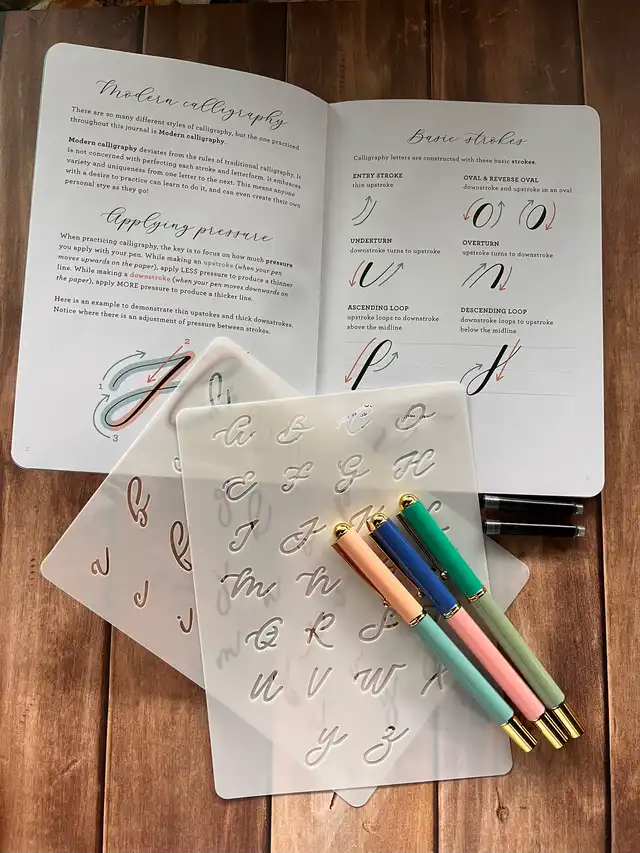 Modern calligraphy
There are so many different styles of calligraphy, but the one practiced
throughout this journal is Modern calligraphy.
Modern calligraphy deviates from the rules of traditional calligraphy. It
is not concerned with perfecting each stroke and letterform. It embraces
variety and uniqueness from one letter to the next. This means anyone
with a desire to practice can learn to do it, and can even create their own
personal stye as they go!
Applying pressure
When practicing calligraphy, the key is to focus on how much pressure
you apply with your pen. While making an upstroke (when your pen
moves upwards on the paper), apply LESS pressure to produce a thinner
line. While making a downstroke (when your pen moves downwards on
the paper), apply MORE pressure to produce a thicker line.
Here is an example to demonstrate thin upstokes and thick downstrokes.
Notice where there is an adjustment of pressure between strokes.
1
2
3
Basic strokes
Calligraphy letters are constructed with these basic strokes.
ENTRY STROKE
thin upstroke
OVAL & REVERSE OVAL
downstroke and upstroke in an oval
UNDERTURN
downstroke turns to upstroke
OVERTURN
upstroke turns to downstroke
ASCENDING LOOP
upstroke loops to downstroke
above the midline
DESCENDING LOOP
downstroke loops to upstroke
below the midline
A B C D
E F G H
I J K
M N
Q R S
U V W X
Y Z